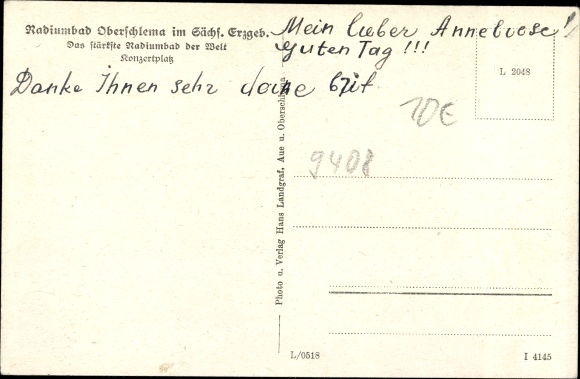 Radiumbad Oberschlema im Sächs. Erzgeb.
Das stärkste Radiumbad der Welt
Konzertplatz
Mein lieber Annelvose!
Guten Tag !!!
Danke Ihnen sehr deine
L 2048
10€
9408
Photo u. Verlag Hans Landgraf, Aue u. Oberschlema
L/0518
I 4145